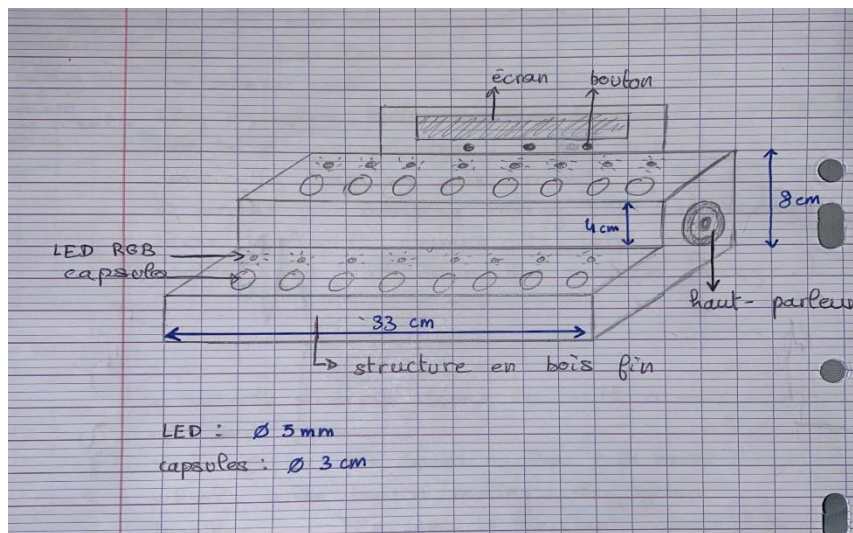 écran
bouton
8cm
4cm
LED RGB
capsules
haut-parleur
33 cm
structure en bois fin
LED : Ø 5mm
capsules : Ø 3 cm